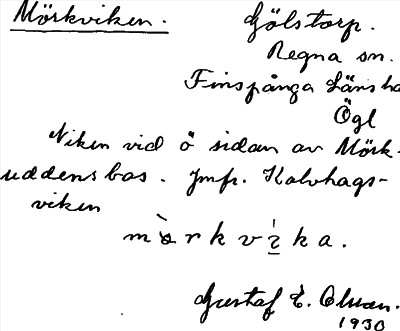 Mörkviken. Gölstorp.
Regna sn.
Finspånga Läns hd
Ögl
Viken vid ö sidan av Mörk-
uddens bas. Jmfr. Kalvhags-
viken
mòrkvìka.
Gustaf E. Olsson.
1930